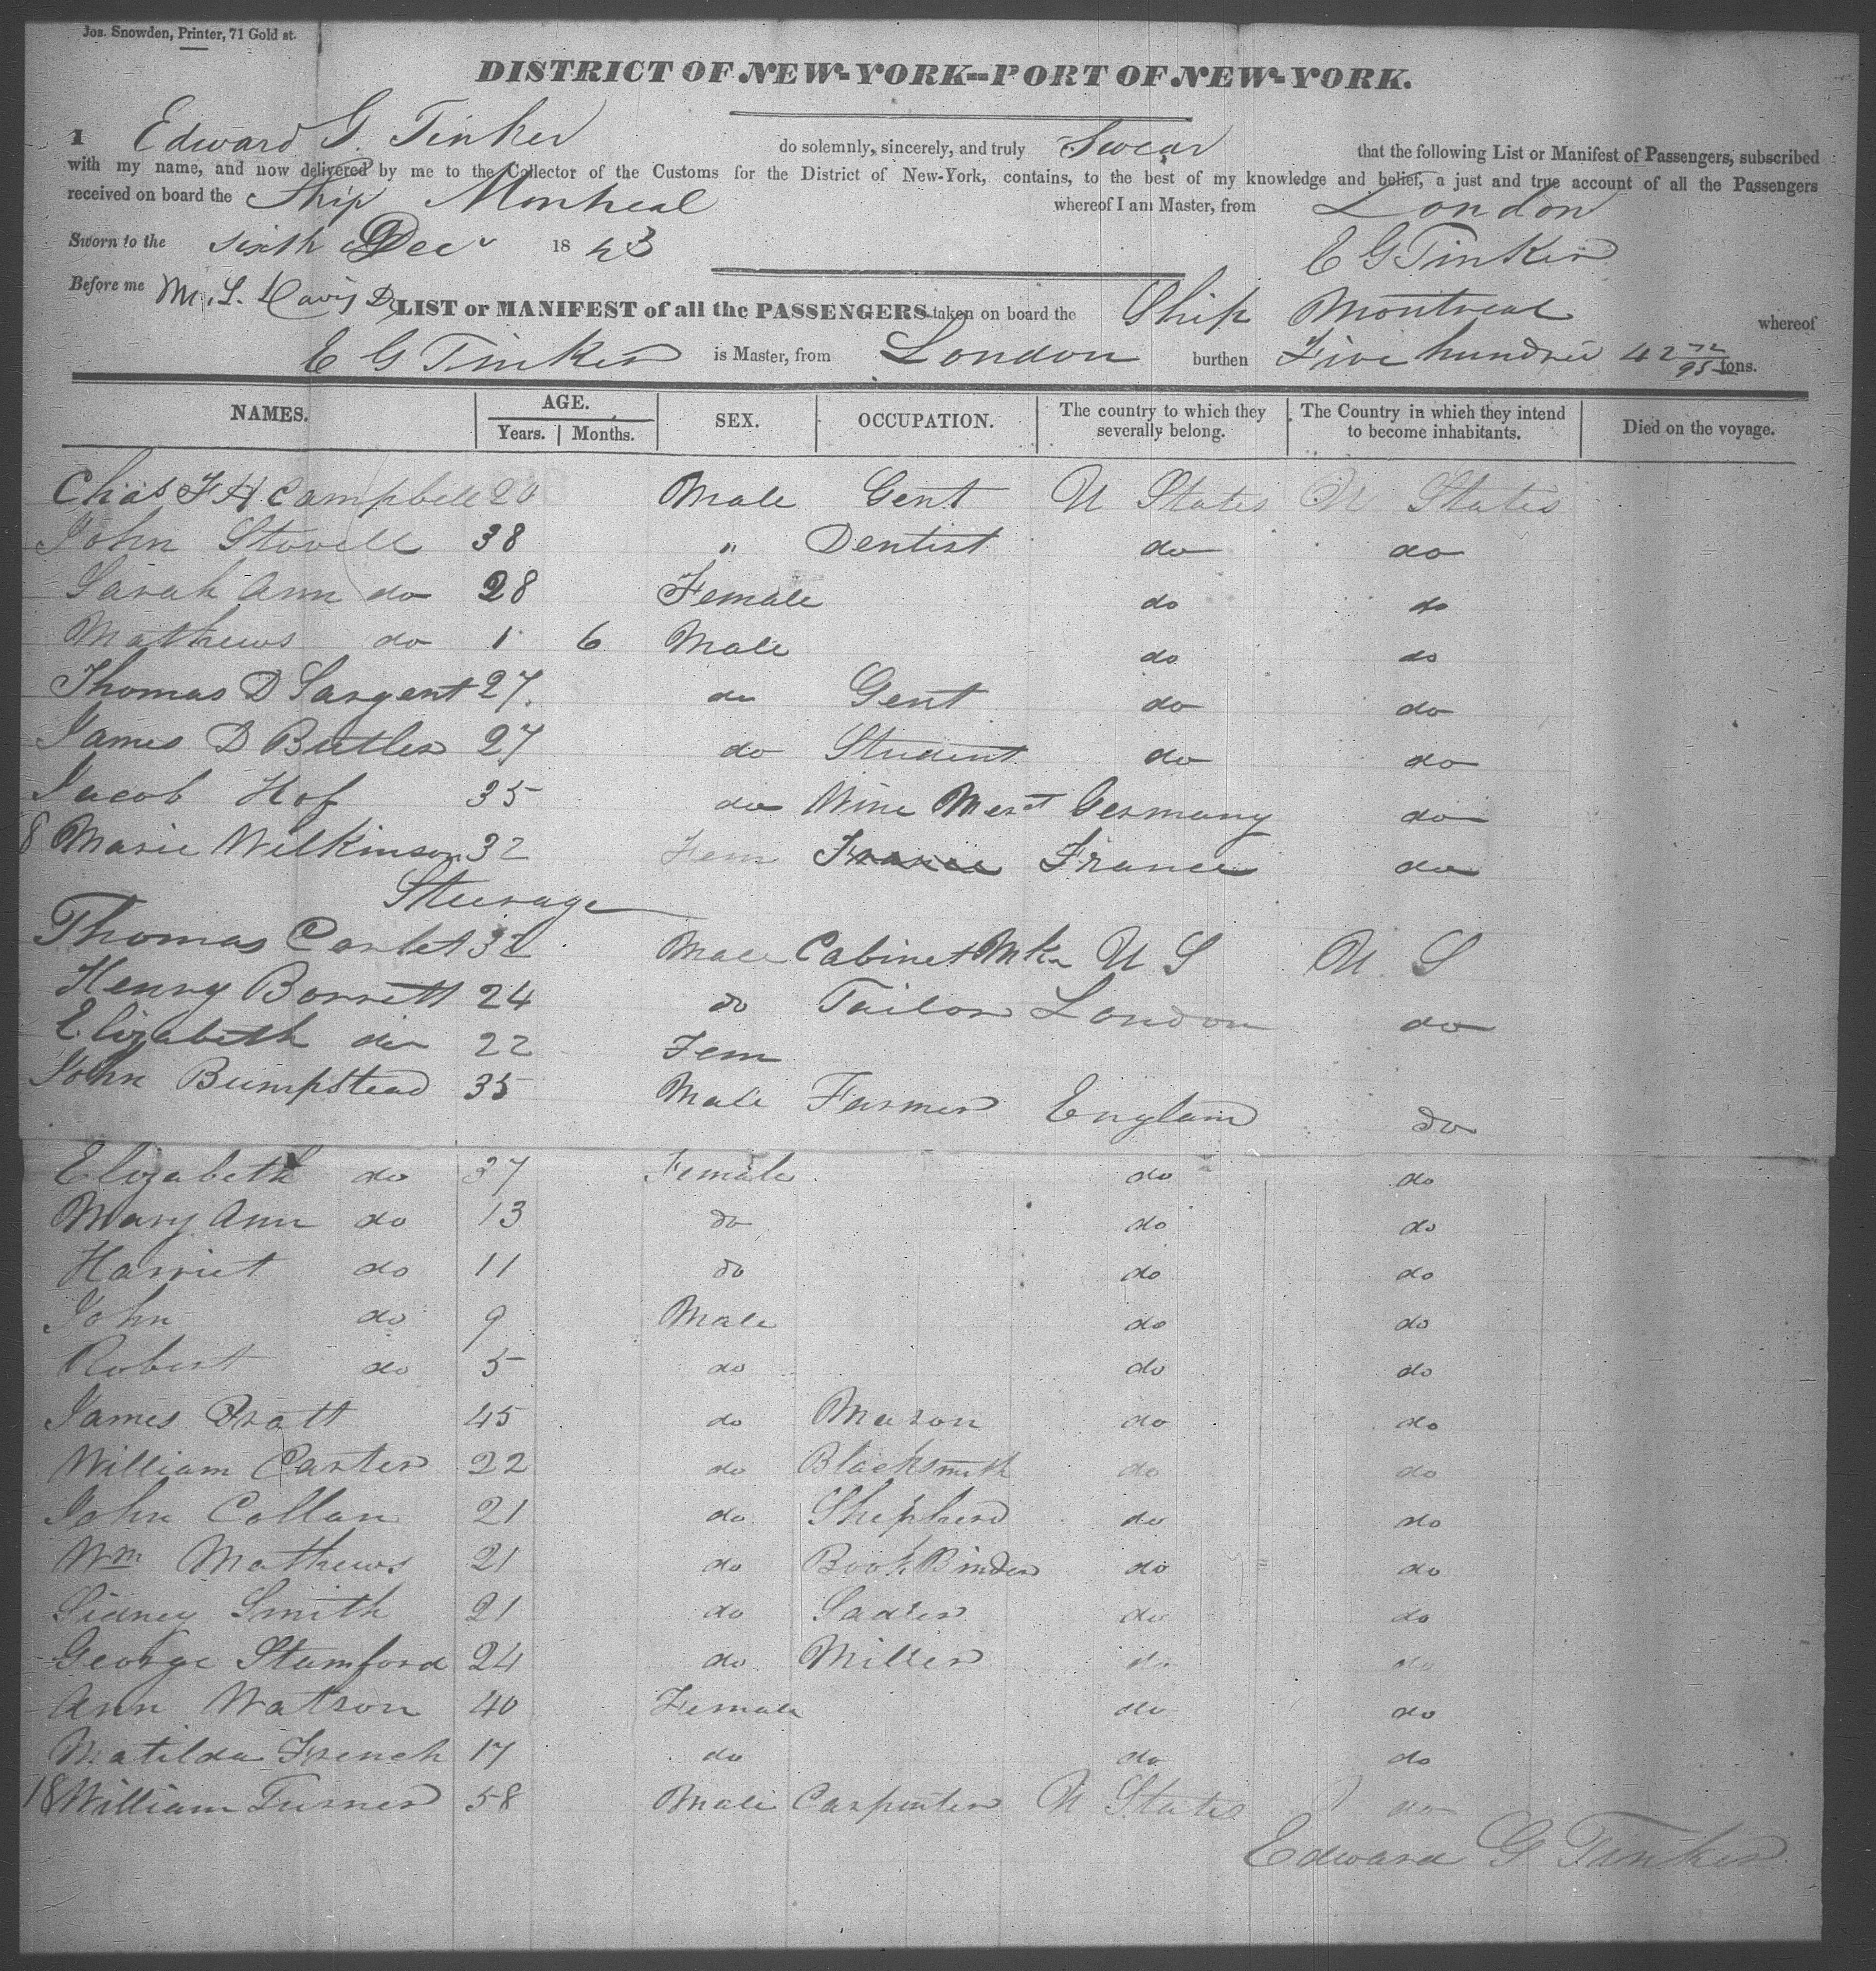 Jos. Snowden, Printer, 71 Gold st.
DISTRICT OF NEW-YORK--PORT OF NEW-YORK.
I Edward G. Tinker do solemnly, sincerely, and truly Swear that the following List or Manifest of Passengers, subscribed
with my name, and now delivered by me to the Collector of the Customs for the District of New-York, contains, to the best of my knowledge and belief, a just and true account of all the Passengers
received on board the Ship Montreal whereof I am Master, from London
Sworn to the sixth Decr 1843 E G Tinker
Before me M. L. Davis
LIST or MANIFEST of all the PASSENGERS taken on board the Ship Montreal whereof
E G Tinker is Master, from London burthen Five hundred 42 72/95 tons.
NAMES. AGE. Years. Months. SEX. OCCUPATION. The country to which they severally belong. The Country in which they intend to become inhabitants. Died on the voyage.
Chas F H Campbell 20 Male Gent U States U States
John Stovell 38 " Dentist do do
Sarah Ann do 28 Female do do
Mathews do 1 6 Male do do
Thomas D Sargent 27 do Gent do do
James D Butler 27 do Student do do
Jacob Hof 35 do Wine Mercht Germany do
8 Marie Wilkinson 32 Fem France France do
Steerage
Thomas 32 Male Cabinet Mkr U S U S
Henry Borrett 24 do Tailor London do
Elizabeth do 22 Fem
John Bumpstead 35 Male Farmer England do
Elizabeth do 37 Female do do
Mary Ann do 13 do do do
Harriet do 11 do do do
John do 9 Male do do
Robert do 5 do do do
James Pratt 45 do Mason do do
William Carter 22 do Blacksmith do do
John Collan 21 do Shepherd do do
Wm Mathews 21 do Book Binder do do
Sidney Smith 21 do Sadler do do
George Stamford 24 do Miller do do
Ann Watson 40 Female do do
Matilda French 17 do do do
18 William Turner 58 Male Carpenter U States do
Edward G Tinker